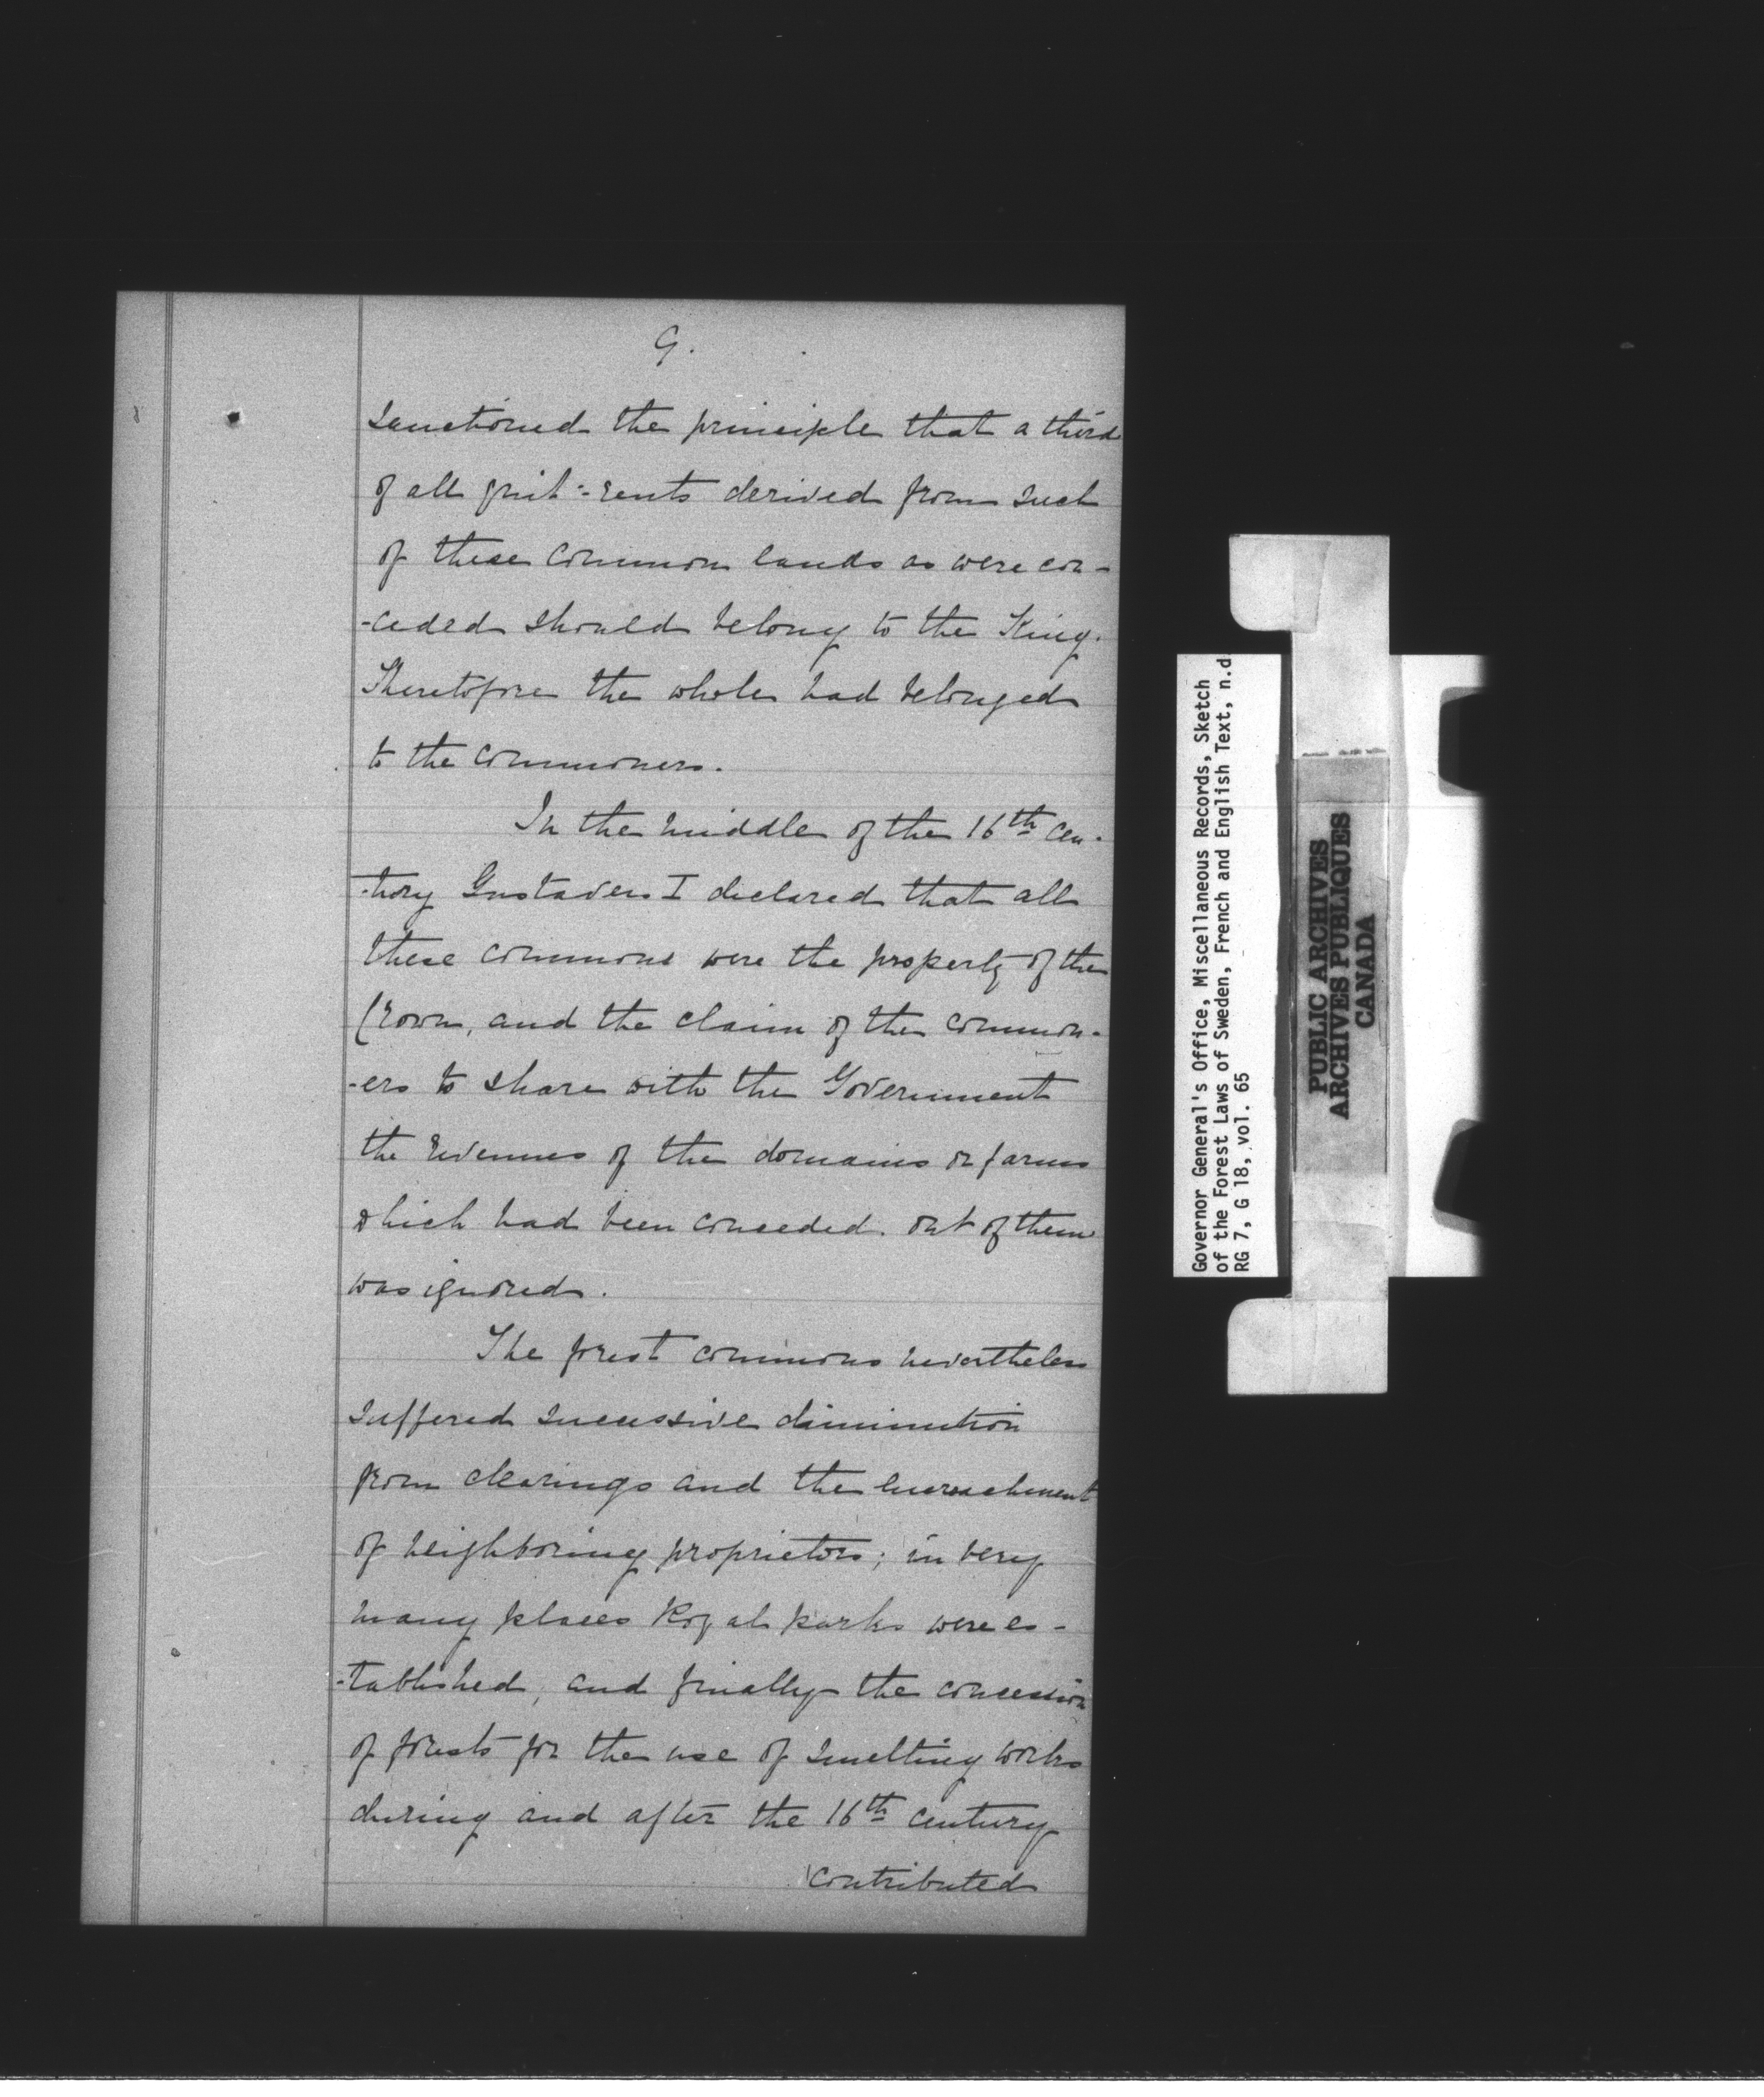 9.
sanctioned the principle that a third
of all quit-rents derived from such
of these common lands as were con-
-ceded should belong to the King.
Theretofore the whole had belonged
to the commoners.
In the middle of the 16th cen-
-tury Gustavus I declared that all
these commons were the property of the
Crown, and the claim of the common-
-ers to share with the Government
the revenues of the domains or farms
which had been conceded out of them
was ignored.
The forest commons nevertheless
suffered successive diminution
from clearings and the encroachment
of neighboring proprietors; in very
many places Royal parks were es-
-tablished, and finally the concession
of forests for the use of smelting works
during and after the 16th century
contributed
Governor General's Office, Miscellaneous Records, Sketch
of the Forest Laws of Sweden, French and English Text, n.d
RG 7, G 18, vol. 65
PUBLIC ARCHIVES
ARCHIVES PUBLIQUES
CANADA